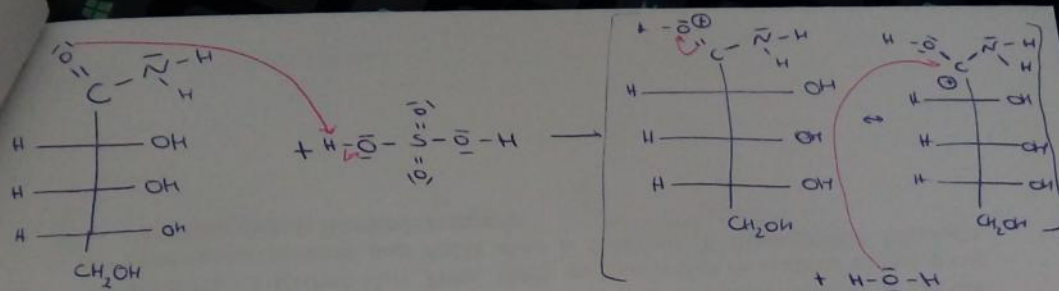 O
N-H
H
C
H OH
H OH
H OH
CH₂OH
+ H-O-S-O-H
O
O
+ -O ⊕
C
N-H
H
H OH
H OH
H OH
CH₂OH
H
O
C
⊕
N-H
H
H OH
H OH
H OH
CH₂OH
+ H-O-H